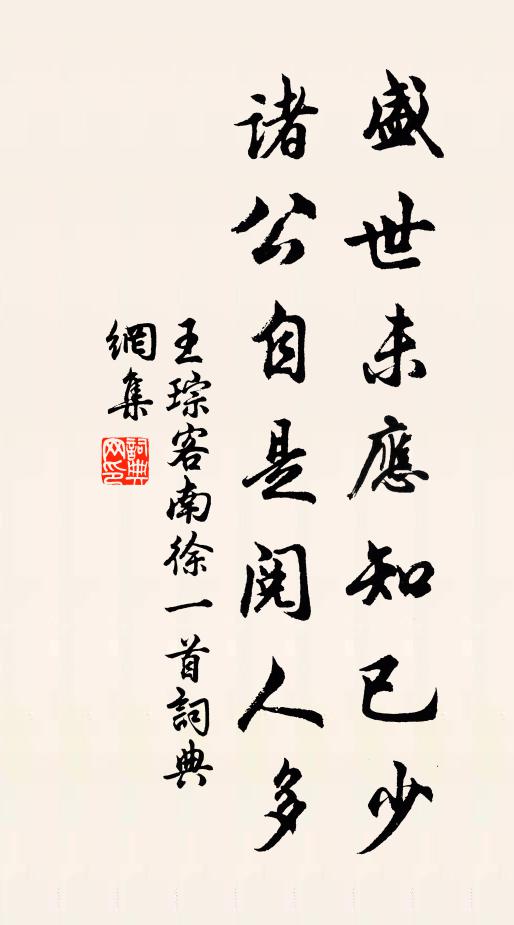 盛世未應知已少
諸公自是閱人多
王琮客南徐一首詞典
網集
詞典
网印